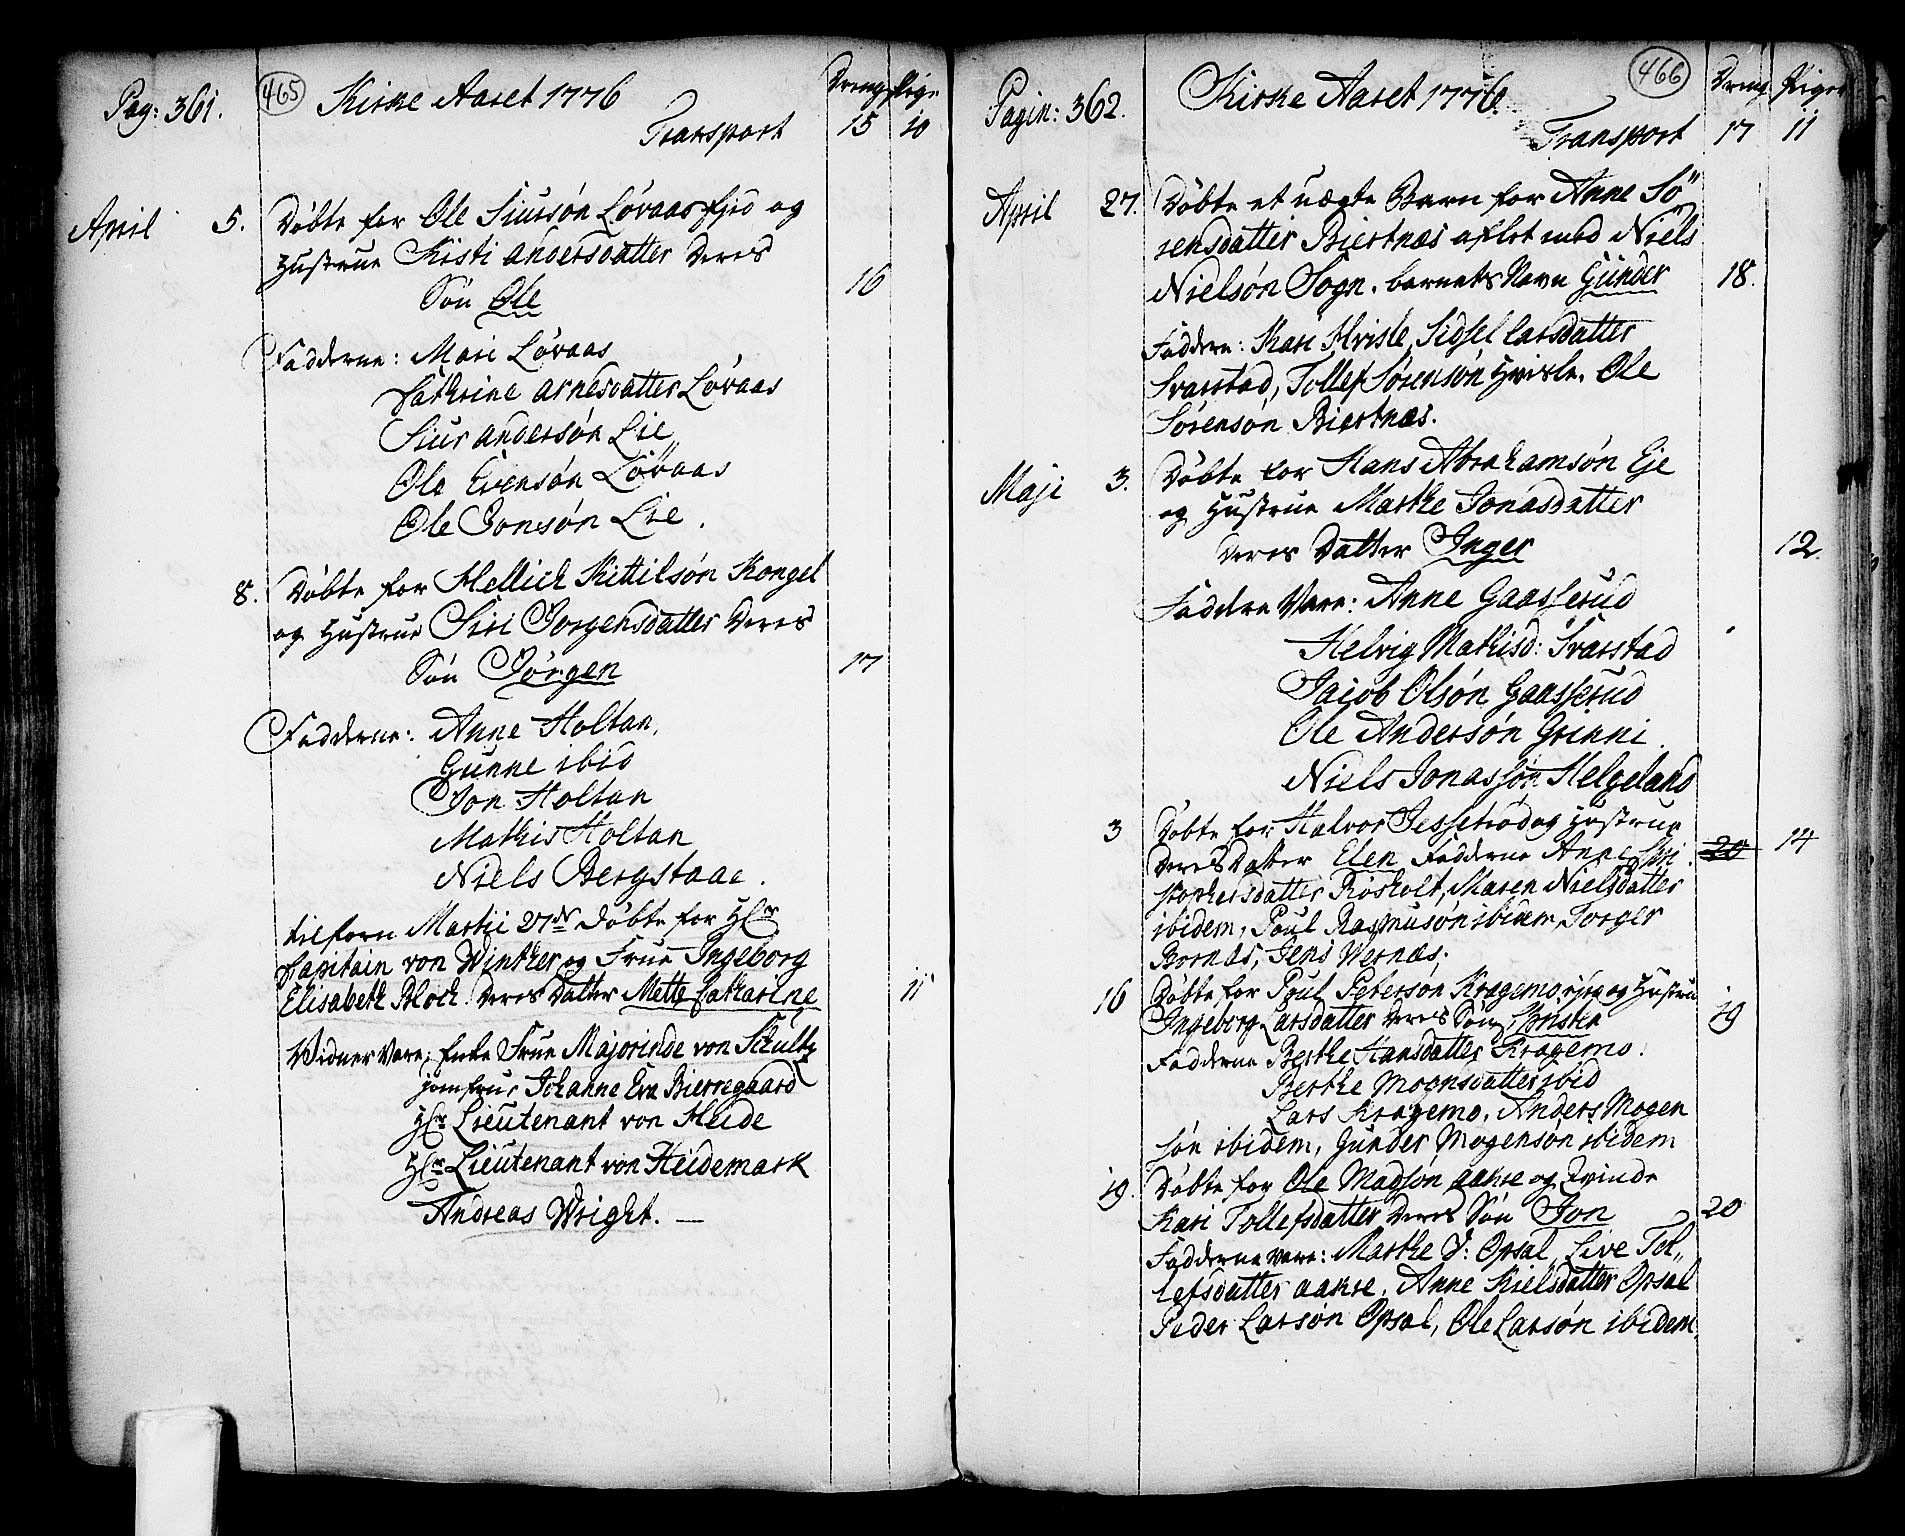 Pag: 361.
465
Kirke Aaret 1776
Drenge Pige
Transport 15 10
April 5. Døbte for Ole Siursøn Løvaas ejed og
Hustrue Kisti Andersdatter Deres
Søn Ole 16
Fadderne: Mari Løvaas
Cathrine Arnesdatter Løvaas
Siur Andersøn Lie
Ole Evensøn Løvaas
Ole Jonsøn Lie.
8. Døbte for Hellich Kittilsøn Kongel
og Hustrue Siri Jorgensdatter Deres
Søn Jørgen 17
Fadderne: Anne Holtan,
Gunne ibid
Jon Holtan
Mathis Holtan
Niels Bergstaae.
tilforn Martii 27de Døbte for Hr
Capitain von Winther og Frue Ingeborg
Elisabeth Bloch Deres Datter Mette Catharine 11
Widner Vare: Enke Frue Majorinde von Schultz
jomfrue Johanne Eva Bierregaard
Hr Lieutenant von Heide
Hr Lieutenant von Heidemark
Andreas Wright. —
Pagin: 362.
Kirke Aaret 1776.
466
Dreng Piger
Transport 17 11
April 27. Døbte et uægte Barn for Anne Sø"
rensdatter Biertnæs aflet med Niels
Nielsøn Sogn. barnets Navn Gunder 18.
Faddere: Kari Hvisle, Sidsel Larsdatter
Svarstad, Tollef Sørensøn Hvisle. Ole
Sørensøn Biertnæs.
Maji 3. Døbte for Hans Abrahamsøn Eje
og Hustrue Marthe Jonasdatter
Deres Datter Inger 12.
Faddere Vare: Anne Gaasserud
Helvig Mathisd: Svarstad
Jacob Olsøn Gaasserud
Ole Andersøn Grinni.
Niels Jonassøn Helgeland
3 Døbte for Halvor Jessetrød og Hustrue
Deres Datter Elen Fadderne Anne Chri 20 14
stophersdatter Røsholt, Maren Nielsdatter
ibidem, Poul Rasmusøn ibidem, Torger
Bornæs, Jens Wernæs.
16 Døbte for Poul Petersøn Kragemo ejee og Hustru
Ingeborg Larsdatter Deres Søn 19
Fadderne Berthe Hansdatter Kragemo.
Berthe Mognsdatter ibid
Lars Kragemo, Anders Mogen
søn ibidem, Gunder Mogensøn ibidem
19. Døbte for Ole Madsøn aakre og Qvinde
Kari Tollefsdatter Deres Søn Jon 20
Fadderne vare: Marthe J: Opsal, Live Tol"
lefsdatter aakre, Anne Kielsdatter Opsal
Peder Larsøn Opsal, Ole Larsøn ibidem.